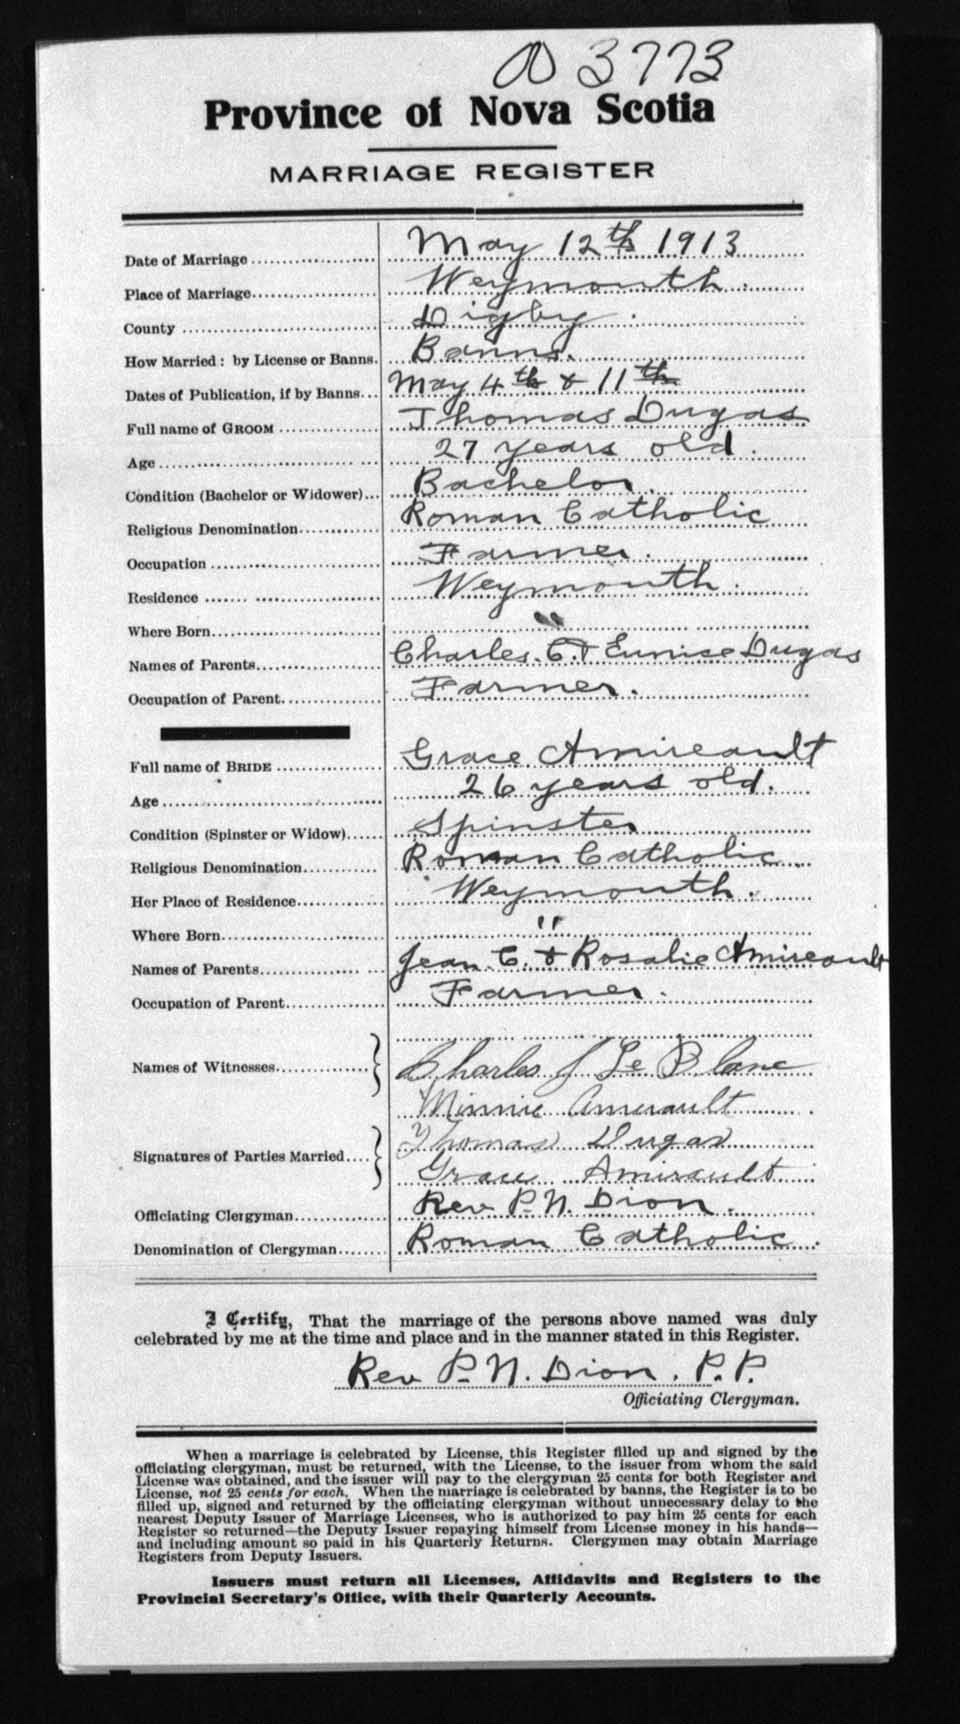 3773
Province of Nova Scotia
MARRIAGE REGISTER
Date of Marriage May 12th 1913
Place of Marriage Weymouth.
County Digby.
How Married: by License or Banns. Banns.
Dates of Publication, if by Banns May 4th & 11th
Full name of GROOM Thomas Dugas
Age 27 years old.
Condition (Bachelor or Widower) Bachelor.
Religious Denomination Roman Catholic
Occupation Farmer.
Residence Weymouth.
Where Born "
Names of Parents Charles C. & Eunice Dugas
Occupation of Parent Farmer.
Full name of BRIDE Grace Amireault
Age 26 years old.
Condition (Spinster or Widow) Spinster
Religious Denomination Roman Catholic.
Her Place of Residence Weymouth.
Where Born "
Names of Parents Jean C. & Rosalie Amireault
Occupation of Parent Farmer.
Names of Witnesses Charles J Le Blanc
Minnie Amirault
Signatures of Parties Married Thomas Dugas
Grace Amirault
Officiating Clergyman Rev P. N. Dion.
Denomination of Clergyman Roman Catholic.
I Certify, That the marriage of the persons above named was duly
celebrated by me at the time and place and in the manner stated in this Register.
Rev P. N. Dion. P.P.
Officiating Clergyman.
When a marriage is celebrated by License, this Register filled up and signed by the
officiating clergyman, must be returned, with the License, to the issuer from whom the said
License was obtained, and the issuer will pay to the clergyman 25 cents for both Register and
License, not 25 cents for each. When the marriage is celebrated by banns, the Register is to be
filled up, signed and returned by the officiating clergyman without unnecessary delay to the
nearest Deputy Issuer of Marriage Licenses, who is authorized to pay him 25 cents for each
Register so returned—the Deputy Issuer repaying himself from License money in his hands—
and including amount so paid in his Quarterly Returns. Clergymen may obtain Marriage
Registers from Deputy Issuers.
Issuers must return all Licenses, Affidavits and Registers to the
Provincial Secretary's Office, with their Quarterly Accounts.